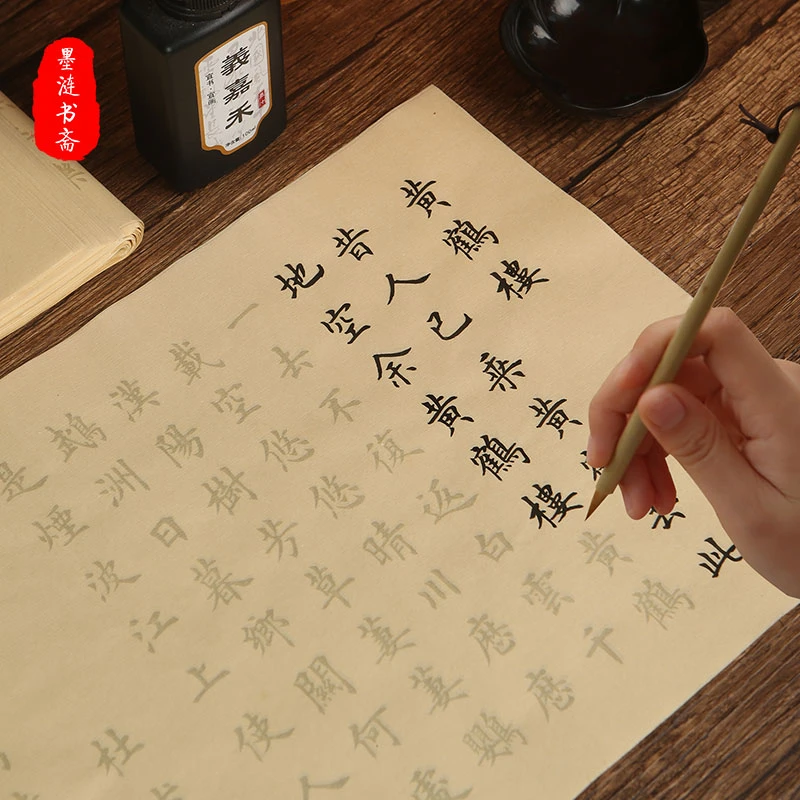 墨涟书斋
義嘉禾
宜书·宜画
净含量:100ml
黄鶴樓
昔人已乘黄雲此
地空余黄鶴樓黄鶴
一去不復返白雲千
載空悠悠晴川歷歷
漢陽樹芳草萋萋鸚
鵡洲日暮鄉關何處
是煙波江上使人
杜